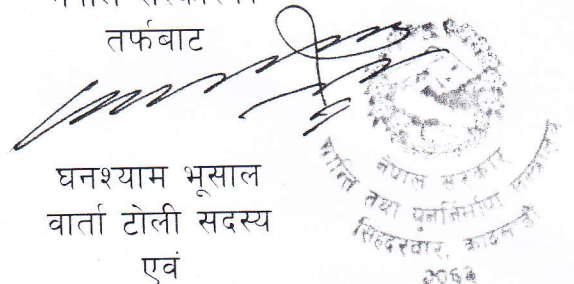 तर्फबाट
घनश्याम भूसाल
वार्ता टोली सदस्य
एवं
नेपाल सरकार
शान्ति तथा पुनर्निर्माण मन्त्रालय
सिंहदरवार, काठमाडौं